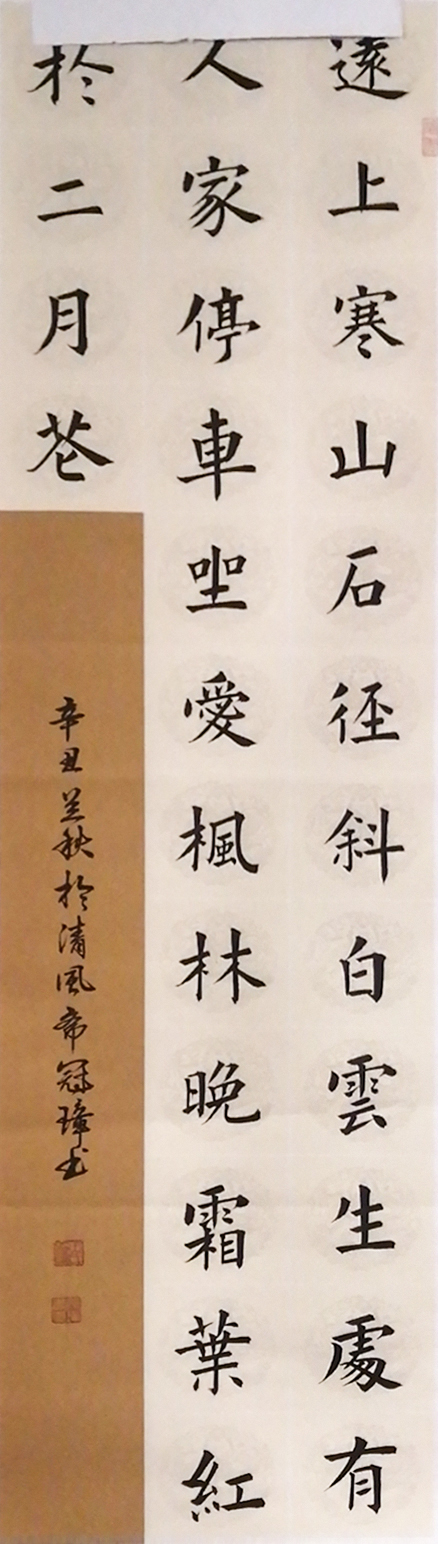 遠上寒山石徑斜白雲生處有
人家停車坐愛楓林晚霜葉紅
於二月花
辛丑兰秋於清風帝冠璋书